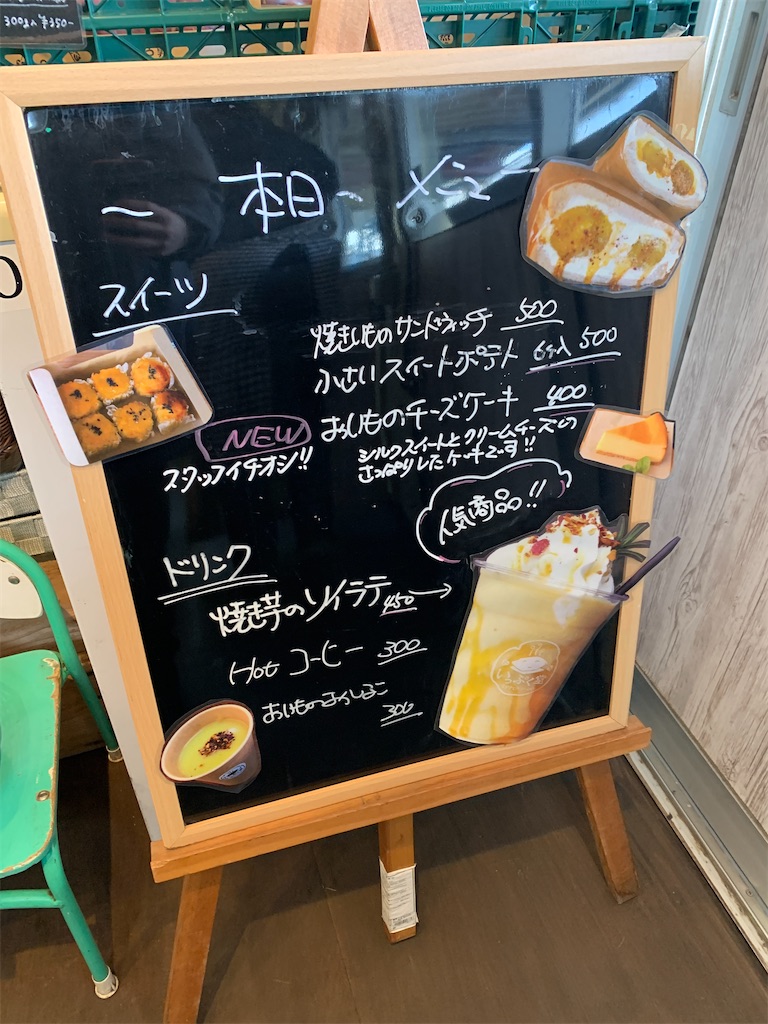 300g入 ¥350~
~ 本日 ~ メニュー
スイーツ
焼きいものサンドウィッチ 500
小さいスイートポテト 6ヶ入 500
おいものチーズケーキ 400
NEW
スタッフイチオシ!!
シルクスイートとクリームチーズの
さっぱりしたケーキです!!
人気商品!!
ドリンク
焼き芋のソイラテ 450 →
Hot コーヒー 300
おいものおしるこ
300